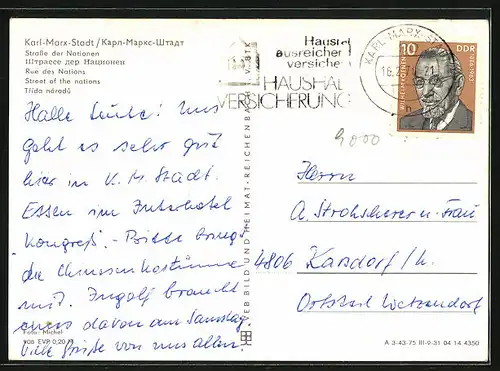 Karl-Marx-Stadt / Карл-Маркс-Штадт
Straße der Nationen
Штрассе дер Национен
Rue des Nations
Street of the nations
Třída národů
Halle Leute! Uns
geht es sehr gut
hier in K. M. Stadt.
Essen im Interhotel
"Kongreß". - Bitte bringt
die
mit. Ingolf braucht
etwas davon am Samstag.
Viele Grüße von uns allen!
Foto: Michel
EVP 0,20 M
VEB BILD UND HEIMAT REICHENBACH I. V. BTK
Hausrat
ausreichend
versichert
HAUSHALT
VERSICHERUNG
KARL-MARX-STADT
10
DDR
WILHELM KOENEN
1886-1963
4000
Herrn
A. Strohscherer u. Frau
4806 Karsdorf/U.
Ortsteil Wetzendorf
A 3-43-75 III-9-31 04 14 4350